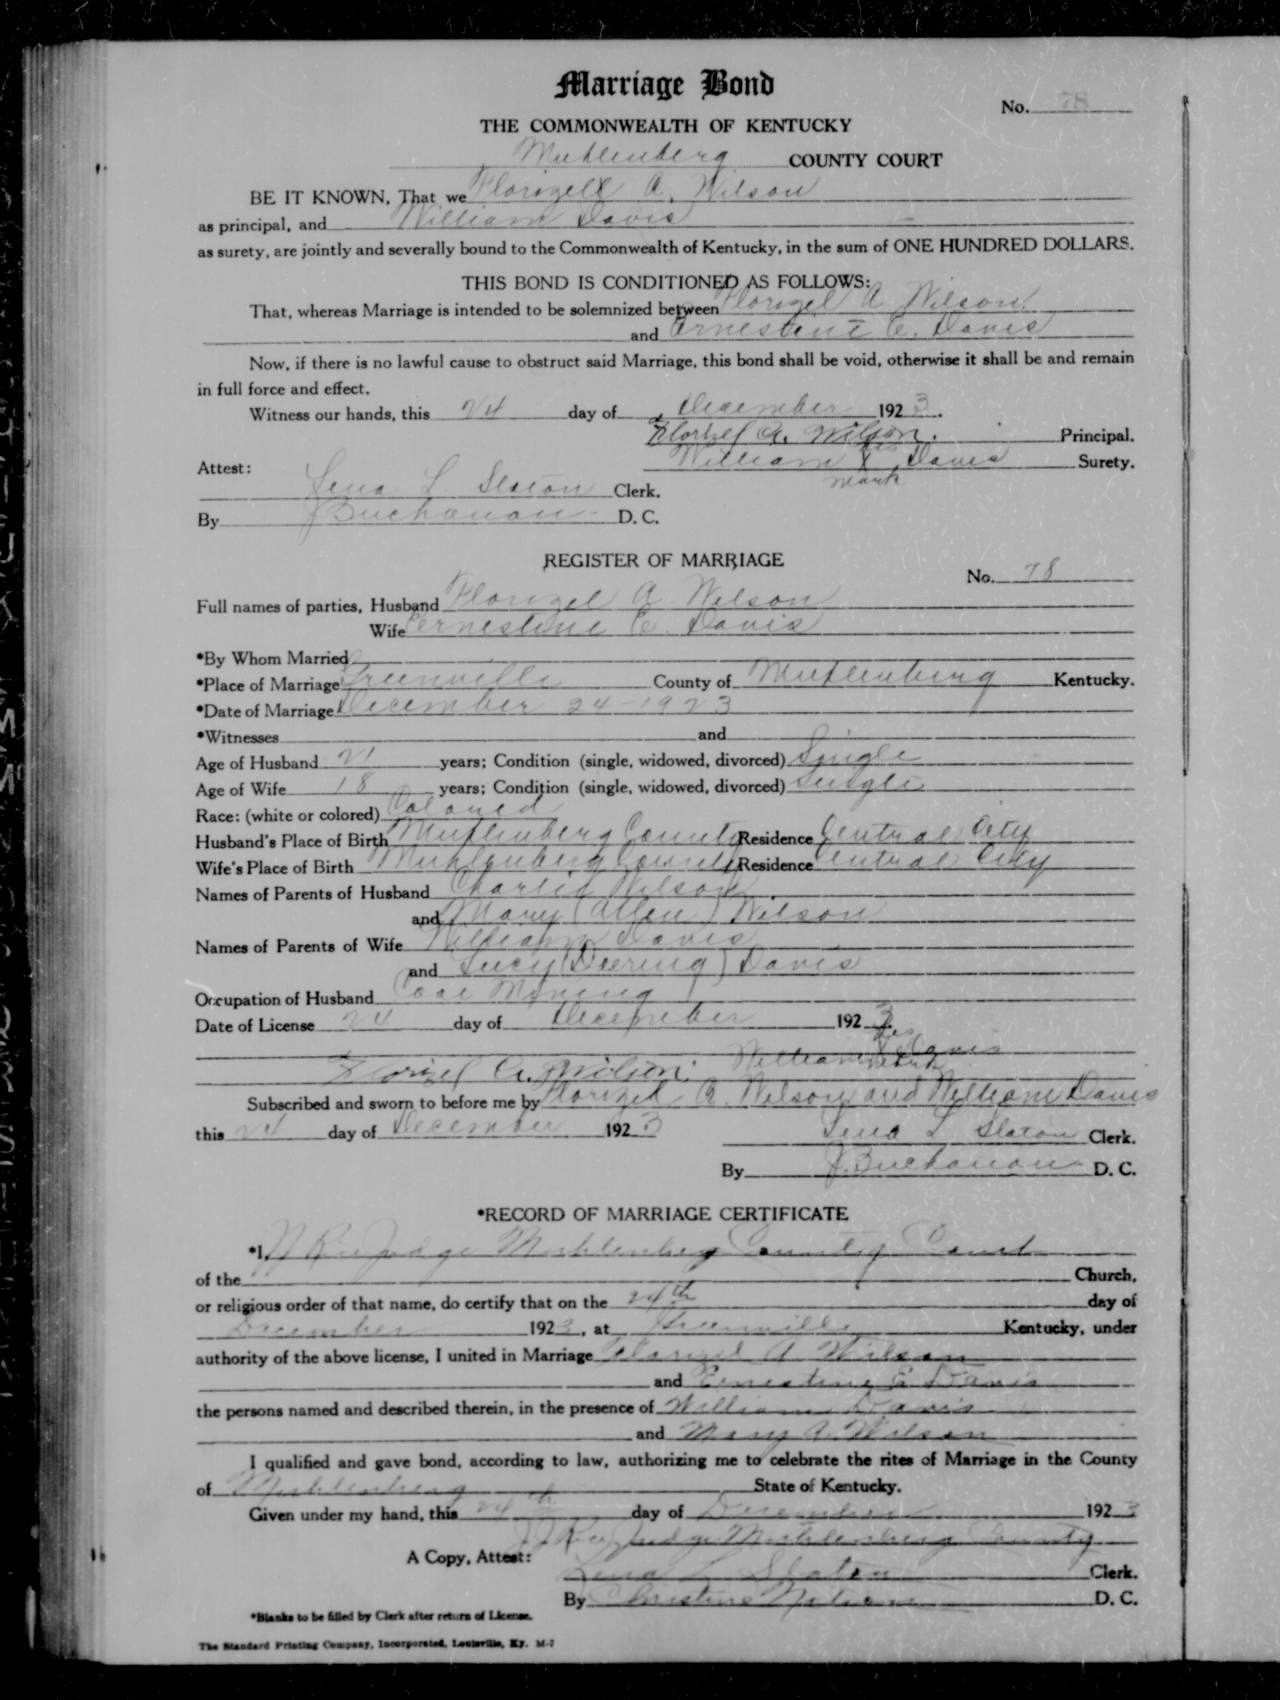 Marriage Bond
No. 78
THE COMMONWEALTH OF KENTUCKY
Muhlenberg COUNTY COURT
BE IT KNOWN, That we Florizell A. Wilson
as principal, and William Davis
as surety, are jointly and severally bound to the Commonwealth of Kentucky, in the sum of ONE HUNDRED DOLLARS.
THIS BOND IS CONDITIONED AS FOLLOWS:
That, whereas Marriage is intended to be solemnized between Florizel A Wilson
and Ernestine E. Davis
Now, if there is no lawful cause to obstruct said Marriage, this bond shall be void, otherwise it shall be and remain
in full force and effect.
Witness our hands, this 24 day of December 1923.
Florizel A. Wilson. Principal.
William his X mark Davis Surety.
Attest:
Lena L Slaton Clerk.
By J Buchanan D. C.
REGISTER OF MARRIAGE
No. 78
Full names of parties, Husband Florizel A Wilson
Wife Ernestine E. Davis
*By Whom Married
*Place of Marriage Greenville County of Muhlenberg Kentucky.
*Date of Marriage December 24-1923
*Witnesses and
Age of Husband 21 years; Condition (single, widowed, divorced) Single
Age of Wife 18 years; Condition (single, widowed, divorced) Single
Race: (white or colored) Colored
Husband's Place of Birth Muhlenberg County Residence Central City
Wife's Place of Birth Muhlenberg County Residence Central City
Names of Parents of Husband Charlie Wilson
and Mary (Allen) Wilson
Names of Parents of Wife William Davis
and Lucy (Deering) Davis
Occupation of Husband Coal Mining
Date of License 24 day of December 1923.
Florizel A. Wilson. William his X mark Davis
Subscribed and sworn to before me by Florizel A. Wilson and William Davis
this 24 day of December 1923
Lena L Slaton Clerk.
By J. Buchanan D. C.
*RECORD OF MARRIAGE CERTIFICATE
*I, Rice Judge Muhlenberg County Court
of the Church,
or religious order of that name, do certify that on the 24th day of
December 1923, at Greenville Kentucky, under
authority of the above license, I united in Marriage Florizel A Wilson
and Ernestine E Davis
the persons named and described therein, in the presence of William Davis
and Mary A. Wilson
I qualified and gave bond, according to law, authorizing me to celebrate the rites of Marriage in the County
of Muhlenberg State of Kentucky.
Given under my hand, this 24th day of December 1923
Rice Judge Muhlenberg County
A Copy, Attest: Lena L Slaton Clerk.
By Christine D. C.
*Blanks to be filled by Clerk after return of License.
The Standard Printing Company, Incorporated, Louisville, Ky. M-7